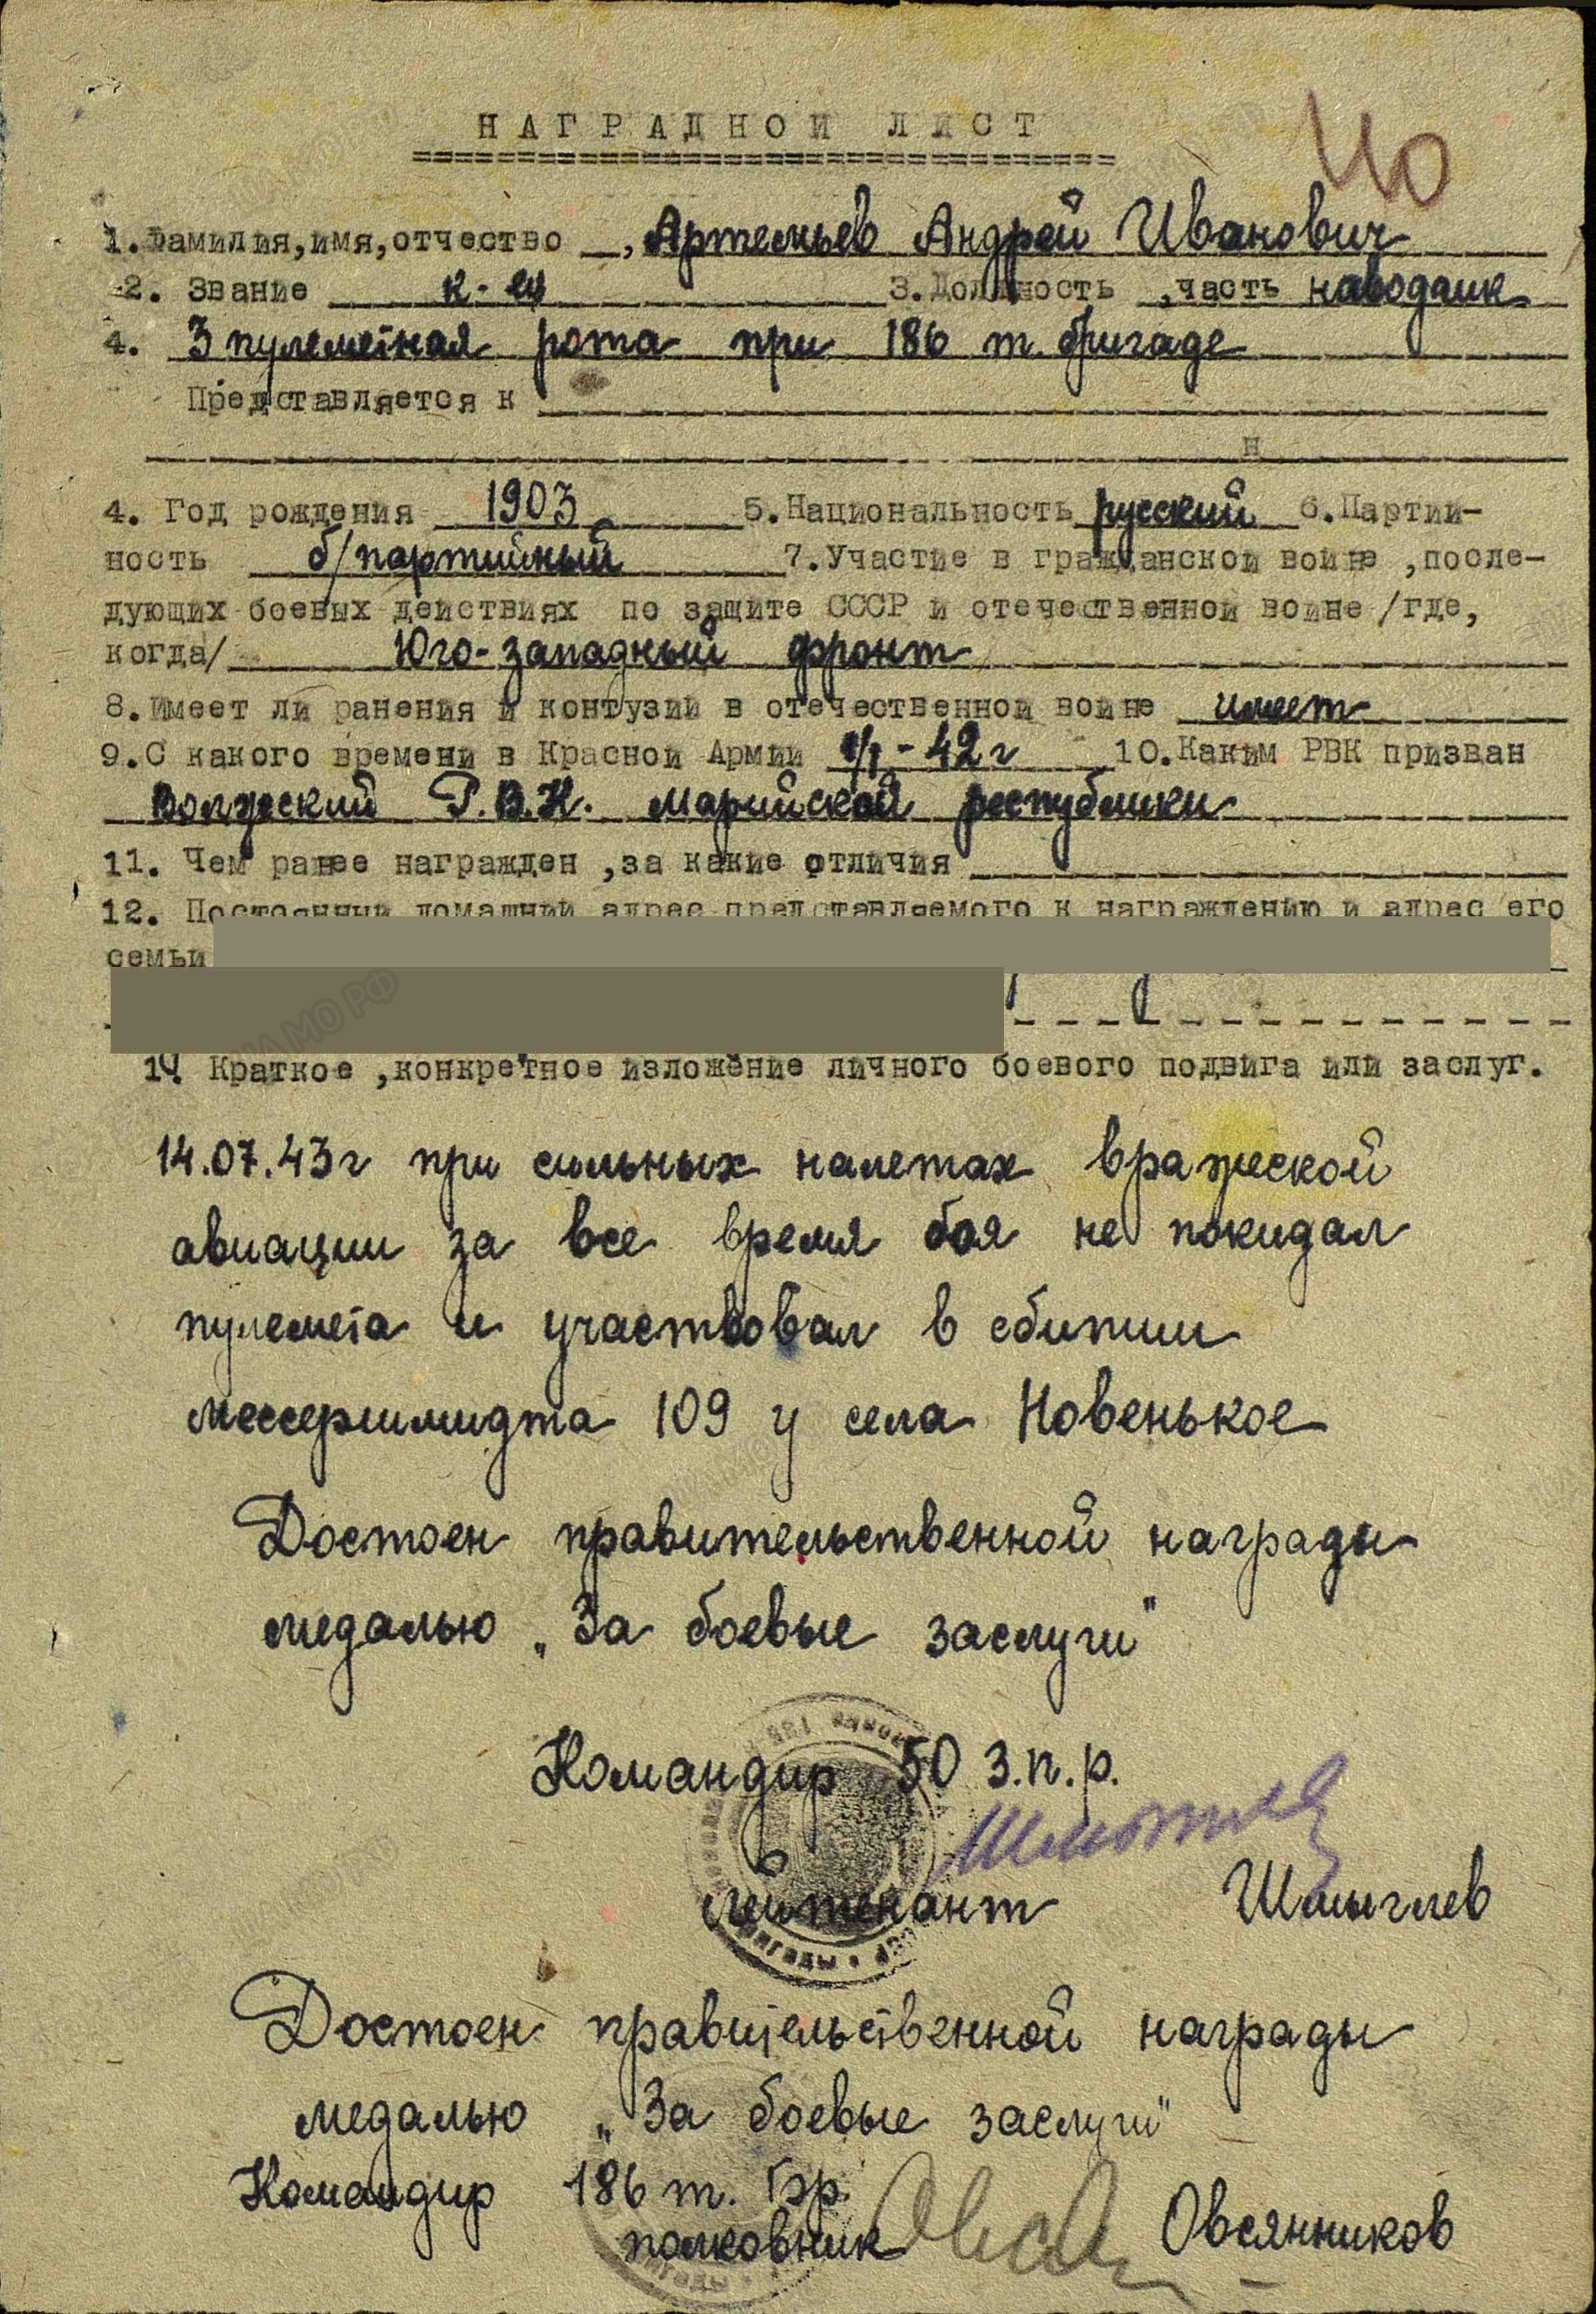 НАГРАДНОЙ ЛИСТ
40
1. Фамилия, имя, отчество , Артемьев Андрей Иванович
2. Звание к-ец 3. Должность , часть наводчик
4. 3 пулеметная рота при 186 т. бригаде
Представляется к
н
4. Год рождения 1903 5. Национальность русский 6. Партий-
ность б/партийный 7. Участие в гражданской войне , после-
дующих боевых действиях по защите СССР и отечественной войне /где,
когда/ Юго-западный фронт
8. Имеет ли ранения и контузии в отечественной войне имеет
9. С какого времени в Красной Армии 1/1-42г 10. Каким РВК призван
Волжский Р.В.К. Марийской республики
11. Чем ранее награжден , за какие отличия
12. Постоянный домашний адрес представляемого к награждению и адрес его
семьи
14 Краткое , конкретное изложение личного боевого подвига или заслуг.
14.07.43г при сильных налетах вражеской
авиации за все время боя не покидал
пулемета и участвовал в сбитии
мессершмидта 109 у села Новенькое
Достоен правительственной награды
медалью „За боевые заслуги"
Командир 50 З.п.р.
лейтенант Шмыглев
Достоен правительственной награды
медалью „За боевые заслуги"
Командир 186 т. бр.
полковник Овсянников